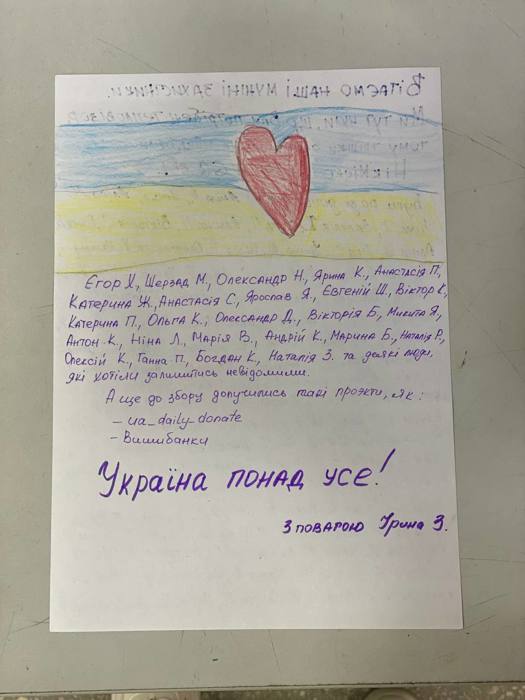 Єгор Х., Шерзад М., Олександр Н., Ярина К., Анастасія П.,
Катерина Ж., Анастасія С., Ярослав Я., Євгеній Ш., Віктор К.,
Катерина П., Ольга К., Олександр Д., Вікторія Б., Микита Я.,
Антон К., Ніна Л., Марія В., Андрій К., Марина Б., Наталія Р.,
Олексій К., Ганна П., Богдан К., Наталія З. та деякі люди,
які хотіли залишитись невідомими.
А ще до збору долучились такі проэкти, як:
– ua_daily_donate
– Вишибанки
Україна понад усе!
З поваг​ою Ірина З.